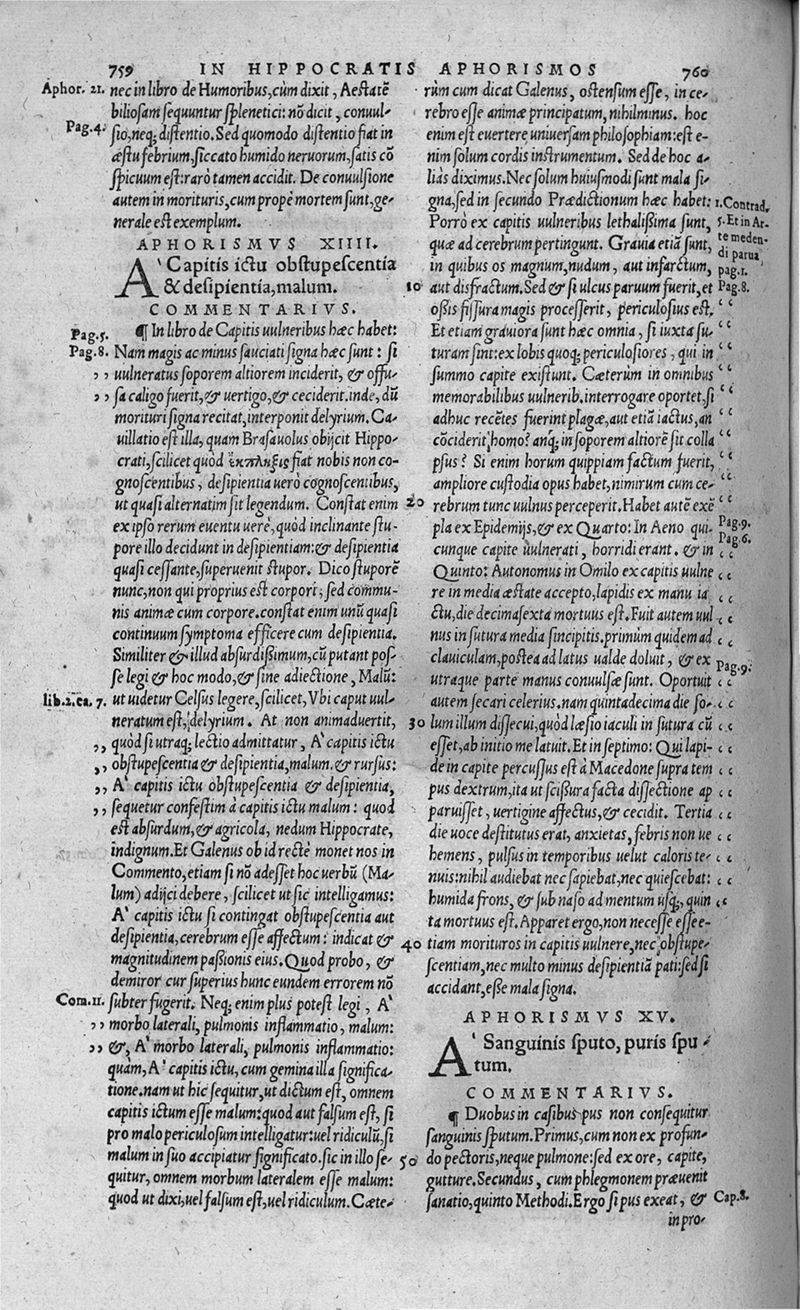 759 IN HIPPOCRATIS APHORISMOS 760
Aphor. 21. nec in libro de Humoribus, cùm dixit, Aestatẽ
biliosam sequuntur splenetici: nõ dicit, conuul-
Pag. 4. sio, neq; distentio. Sed quomodo distentio fiat in
æstu febrium, siccato humido neruorum, satis cõ
spicuum est: rarò tamen accidit. De conuulsione
autem in morituris, cum propè mortem sunt, ge-
nerale est exemplum.
APHORISMVS XIIII.
A' Capitis ictu obstupescentia
& desipientia, malum.
COMMENTARIVS.
Pag. 5. ¶ In libro de Capitis uulneribus hæc habet:
Pag. 8. Nam magis ac minus sauciati signa hæc sunt: si
,, uulneratus soporem altiorem inciderit, & offu-
,, sa caligo fuerit, & uertigo, & ceciderit. inde, dũ
morituri signa recitat, interponit delyrium. Ca-
uillatio est illa, quam Brasauolus obijcit Hippo-
crati, scilicet quòd ἔκπληξις fiat nobis non co-
gnoscentibus, desipientia uerò cognoscentibus,
ut quasi alternatim sit legendum. Constat enim
ex ipso rerum euentu uerè, quòd inclinante stu-
pore illo decidunt in desipientiam: & desipientia
quasi cessante, superuenit stupor. Dico stuporẽ
nunc, non qui proprius est corpori, sed commu-
nis animæ cum corpore. constat enim unũ quasi
continuum symptoma efficere cum desipientia.
Similiter & illud absurdißimum, cũ putant pos-
se legi & hoc modo, & sine adiectione, Malũ:
lib. 2. ca. 7. ut uidetur Celsus legere, scilicet, Vbi caput uul-
neratum est, delyrium. At non animaduertit,
,, quòd si utraq; lectio admittatur, A' capitis ictu
,, obstupescentia & desipientia, malum. & rursus:
,, A' capitis ictu obstupescentia & desipientia,
,, sequetur confestim à capitis ictu malum: quod
est absurdum, & agricola, nedum Hippocrate,
indignum. Et Galenus ob id rectè monet nos in
Commento, etiam si nõ adesset hoc uerbũ (Ma-
lum) adijci debere, scilicet ut sic intelligamus:
A' capitis ictu si contingat obstupescentia aut
desipientia, cerebrum esse affectum: indicat &
magnitudinem paßionis eius. Quod probo, &
demiror cur superius hunc eundem errorem nõ
Com. 11. subterfugerit. Neq; enim plus potest legi, A'
,, morbo laterali, pulmonis inflammatio, malum:
,, &, A' morbo laterali, pulmonis inflammatio:
quàm, A' capitis ictu, cum gemina illa significa-
tione. nam ut hic sequitur, ut dictum est, omnem
capitis ictum esse malum: quod aut falsum est, si
pro malo periculosum intelligatur: uel ridiculũ, si
malum in suo accipiatur significato. sic in illo se-
quitur, omnem morbum lateralem esse malum:
quod ut dixi, uel falsum est, uel ridiculum. Cæte-
rùm cum dicat Galenus, ostensum esse, in ce-
rebro esse animæ principatum, nihilminus. hoc
enim est euertere uniuersam philosophiam: est e-
nim solum cordis instrumentum. Sed de hoc a-
liàs diximus. Nec solum huiusmodi sunt mala si-
gna, sed in secundo Prædictionum hæc habet: 1. Contrad.
Porrò ex capitis uulneribus lethalißima sunt, 5. Et in Ar-
quæ ad cerebrum pertingunt. Grauia etiã sunt, te meden-
in quibus os magnum, nudum, aut infarctum, di parua
pag. 1.
10 aut disfractum. Sed & si ulcus paruum fuerit, et Pag. 8.
oßis fissura magis processerit, periculosius est. “
Et etiam grauiora sunt hæc omnia, si iuxta su- “
turam sint: ex lobis quoq; periculosiores, qui in “
summo capite existunt. Cæterùm in omnibus “
memorabilibus uulnerib. interrogare oportet, si “
adhuc recẽtes fuerint plagæ, aut etiã iactus, an “
cõciderit homo? anq; in soporem altiorẽ sit colla “
psus? Si enim horum quippiam factum fuerit, “
ampliore custodia opus habet, nimirum cum ce- “
20 rebrum tunc uulnus perceperit. Habet autẽ exẽ “
pla ex Epidemijs, & ex Quarto: In Aeno qui- Pag. 9.
Pag. 6.
cunque capite uulnerati, horridi erant. & in “
Quinto: Autonomus in Omilo ex capitis uulne “
re in media æstate accepto, lapidis ex manu ia “
ctu, die decimasexta mortuus est. Fuit autem uul “
nus in sutura media sincipitis. primùm quidem ad “
clauiculam, postea ad latus ualde doluit, & ex “
utraque parte manus conuulsæ sunt. Oportuit Pag. 9.
autem secari celerius. nam quintadecima die so- “
30 lum illum dissecui, quòd læsio iaculi in sutura cũ “
esset, ab initio me latuit. Et in septimo: Qui lapi- “
de in capite percussus est à Macedone supra tem “
pus dextrum, ita ut scissura facta dissectione ap “
paruisset, uertigine affectus, & cecidit. Tertia “
die uoce destitutus erat, anxietas, febris non ue “
hemens, pulsus in temporibus uelut caloris te- “
nuis: nihil audiebat nec sapiebat, nec quiescebat: “
humida frons, & sub naso ad mentum usq;, quin “
ta mortuus est. Apparet ergo, non necesse esse e-
40 tiam morituros in capitis uulnere, nec obstupe-
scentiam, nec multo minus desipientiã pati: sed si
accidant, eße mala signa.
APHORISMVS XV.
A' Sanguinis sputo, puris spu-
tum.
COMMENTARIVS.
¶ Duobus in casibus pus non consequitur
sanguinis sputum. Primus, cum non ex profun-
50 do pectoris, neque pulmone: sed ex ore, capite,
gutture. Secundus, cum phlegmonem præuenit
sanatio, quinto Methodi. Ergo si pus exeat, & Cap. 8.
in pro-